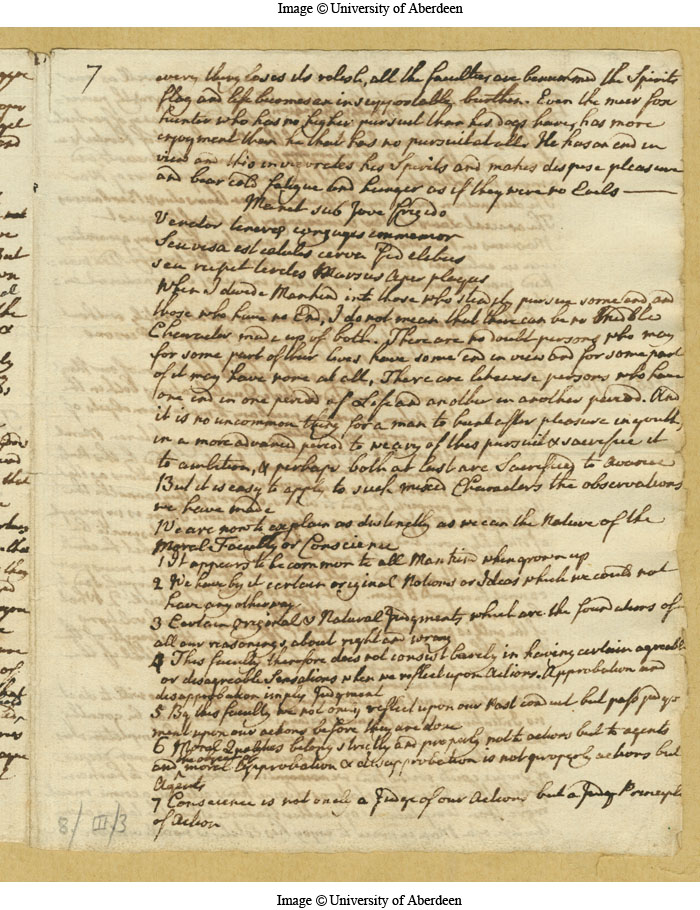 Image © University of Aberdeen
7
every thing loses its relish, all the faculties are benummed the Spirits
flag and life becomes an insupportable burthen. Even the meer fox
hunter who has no higher pursuit than his dogs have, has more
enjoyment than he that has no pursuit at all. He has an end in
view and this invigorates his Spirits and makes despise pleasure
and bear cold fatigue and hunger as if they were no Evils
Manet sub Jove frigido
Venator tenerae conjugis immemor
Seu visa est catulis cerva fidelibus
seu rupit teretes Marsus Aper plagas
When I divide Mankind into those who steadily pursue some end, and
those who have no End, I do not mean that there can be no Middle
Character made up of both. There are no doubt persons who may
for some part of their lives have some end in view and for some part
of it may have none at all. There are likewise persons who have
one end in one period of Life and another in another period. And
it is no uncommon thing for a man to hunt after pleasure in youth,
in a more advanced period to weary of this pursuit & sacrifice it
to ambition, & perhaps both at last are Sacrificed to avarice
But it is easy to apply to such mixed Characters the observations
we have made
We are now to explain as distinctly as we can the Nature of the
Moral Faculty or Conscience
1 It appears to be common to all Mankind when grown up
2 We have by it certain original Notions or Ideas which we could not
have any other way
3 Certain original & Natural Judgments which are the foundations of
all our reasonings about right and wrong
4 This faculty therefore does not consist barely in having certain agreeable
or disagreeable Sensations when we reflect upon Actions. Approbation and
disapprobation imply Judgment
5 By this faculty we not only reflect upon our Past conduct but pass judg-
ment upon our actions before they are done
6 Moral Qualities belong strictly and properly not to actions but to agents
and the object of moral Approbation & disapprobation is not properly actions but
Agents
7 Conscience is not only a Judge of our Actions but a Principle
of Action
8/III/3
Image © University of Aberdeen